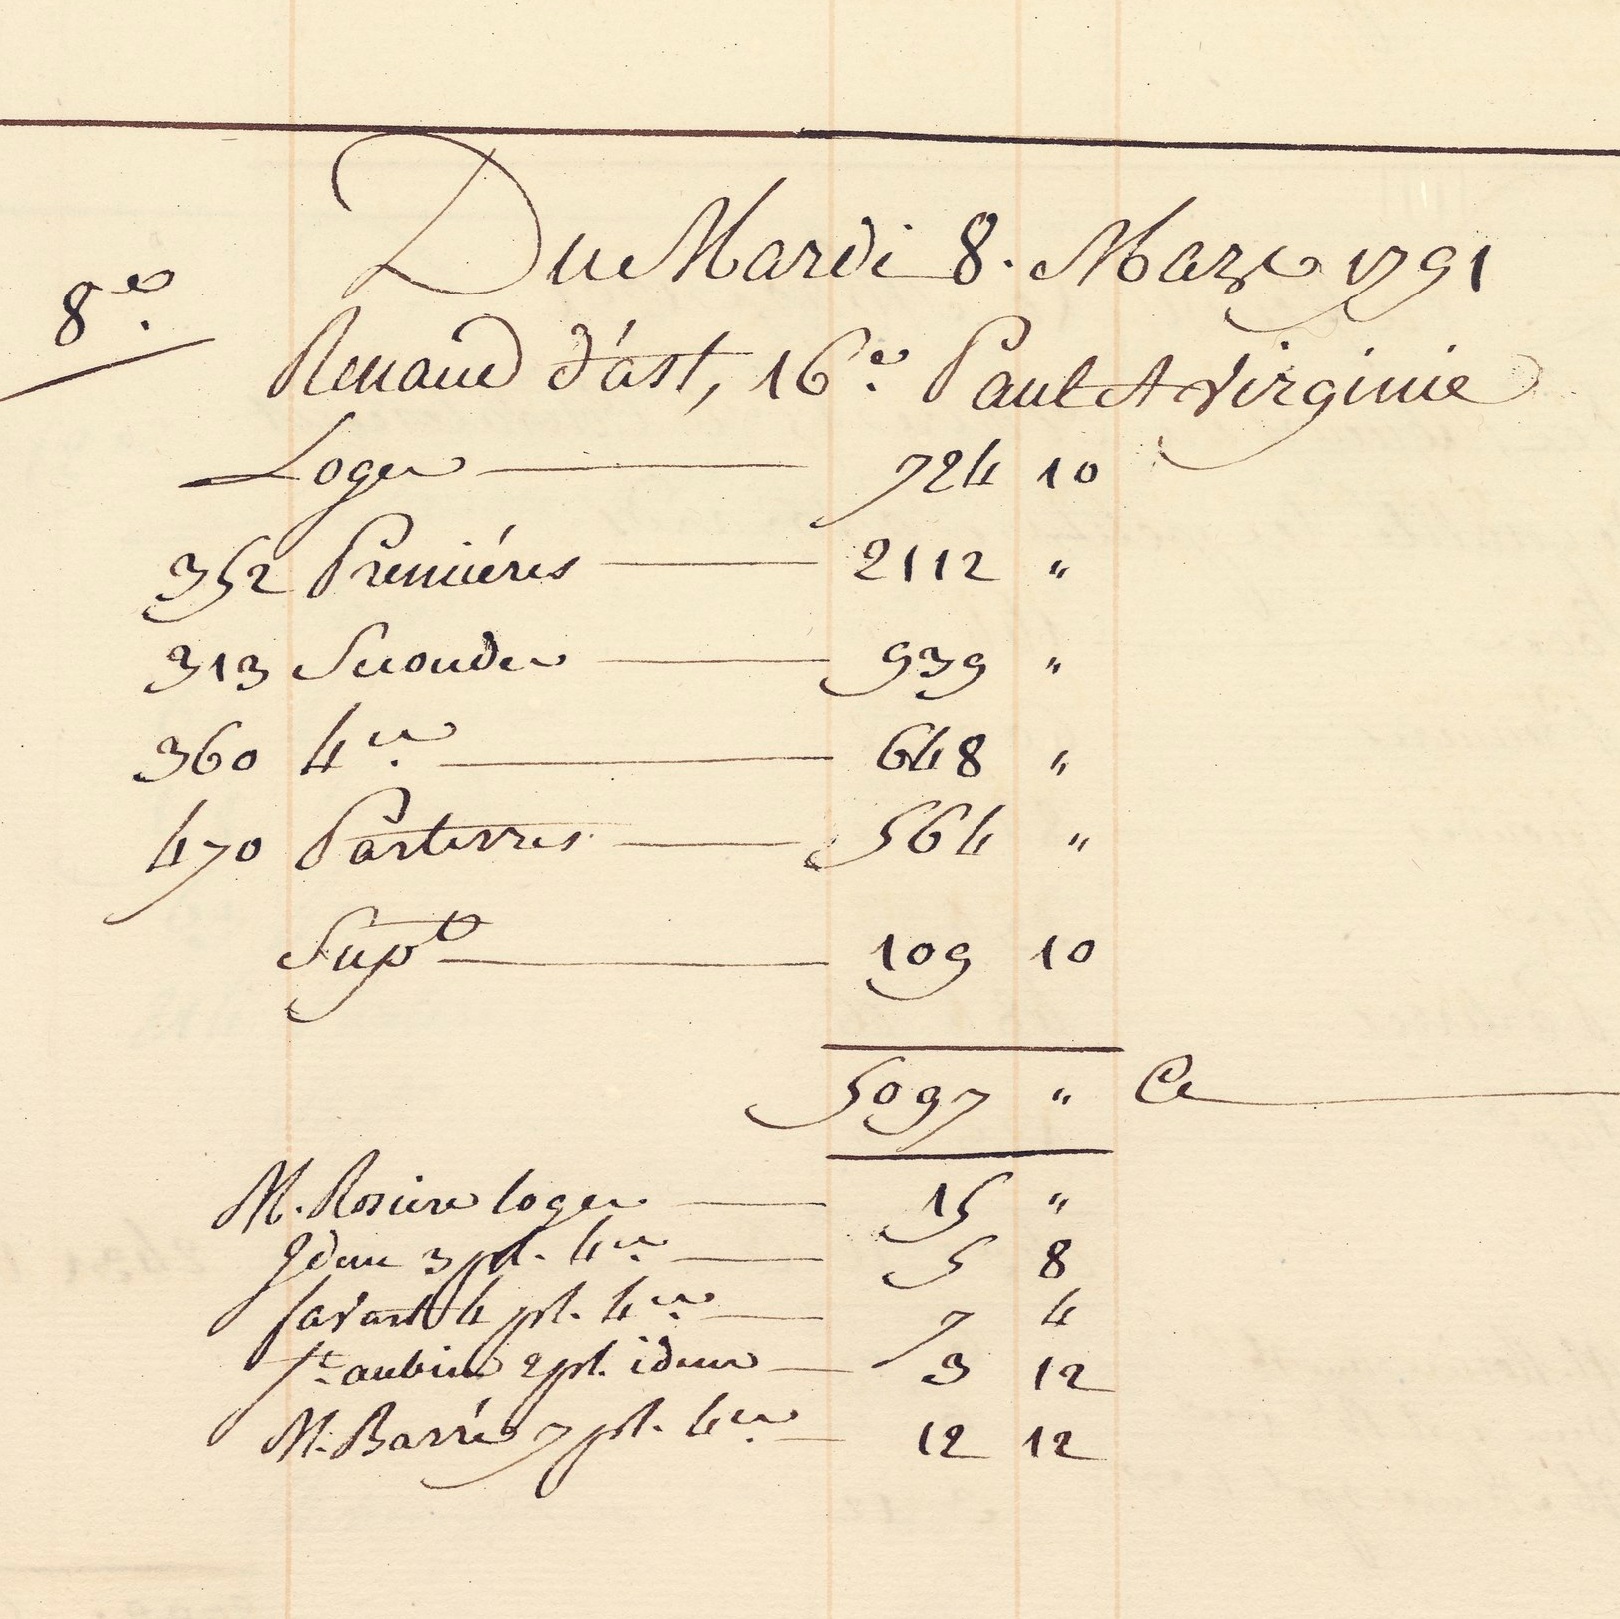 Du Mardi 8. Mars 1791
8e.
Renaud d'ast, 16e. Paul et Virginie
Loges 724 10
352 Premiéres 2112 "
313 Secondes 939 "
360 4es. 648 "
470 Parterres 564 "
Supt 109 10
5097 " Ce
M. Rosiere loges 15 "
Idem 3 pl. 4es. 5 8
favart 4 pl. 4es. 7 4
St. aubin 2 pl. idem 3 12
M. Barré 7 pl. 4es. 12 12